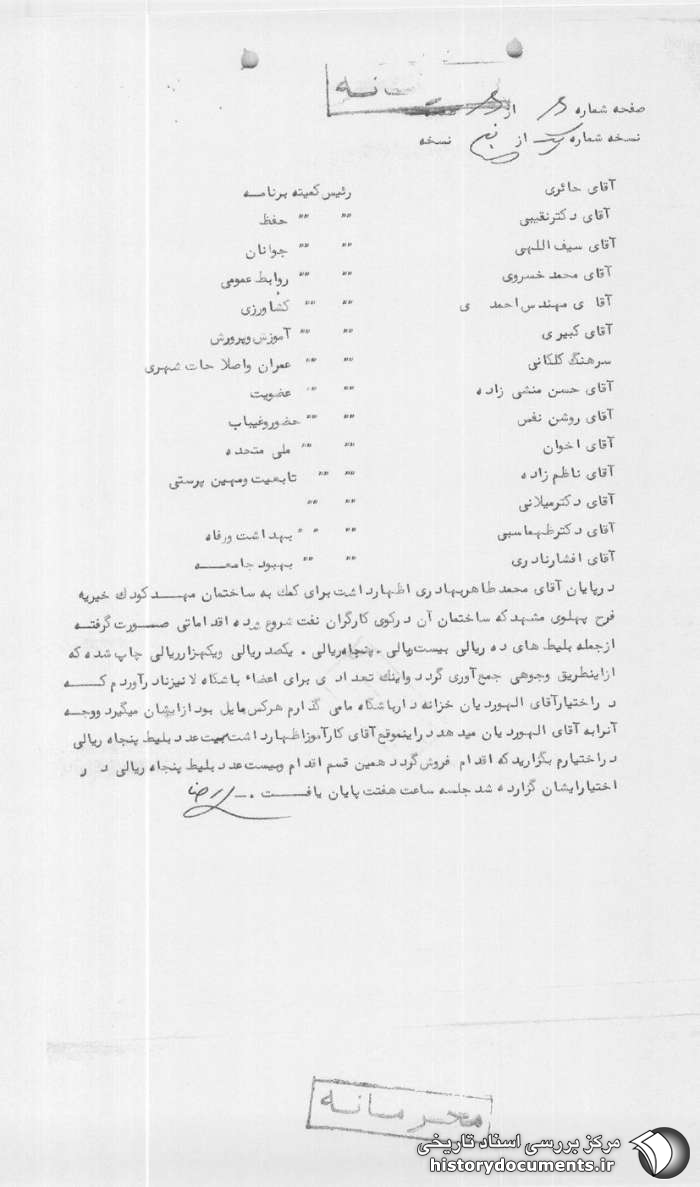 محرمانه
صفحه شماره از
نسخه شماره یک از نسخه
آقای حائری رئیس کمیته برنامه
آقای دکترنقیبی " " حفظ
آقای سیف اللهی " " جوانان
آقای محمد خسروی " " روابط عمومی
آقا ی مهندس احمد ی " " کشاورزی
آقای کبیری " " آموزش وپرورش
سرهنگ گلکانی " " عمران واصلاحات شهری
آقای حسن منشی زاده " " عضویت
آقای روشن نفس " " حضوروغیاب
آقای اخوان " " ملی متحده
آقای ناظم زاده " " تابعیت ومیهن پرستی
آقای دکترمیلانی " "
آقای دکترطهماسبی " " بهداشت ورفاه
آقای افشارنادری " " بهبود جامعه
درپایان آقای محمد طاهربهادری اظهارداشت برای کمک به ساختمان مهد کودک خیریه
فرح پهلوی مشهد که ساختمان آن درکوی کارگران نفت شروع شده اقداماتی صورت گرفته
ازجمله بلیط های ده ریالی بیست ریالی . پنجاه ریالی . یکصد ریالی ویکهزارریالی چاپ شده که
ازاینطریق وجوهی جمع آوری گردد واینک تعدادی برای اعضاء باشگاه لاینزنادرآوردم که
در اختیارآقای الهوردیان خزانه دارباشگاه مامی گذارم هرکس مایل بود ازایشان میگیرد ووجه
آنرابه آقای الهوردیان میدهد دراینموقع آقای کارآموزاظهارداشت بیست عدد بلیط پنجاه ریالی
دراختیارم بگزارید که اقدام فروش گردد همین قسم اقدام وبیست عدد بلیط پنجاه ریالی در
اختیارایشان گزارده شد جلسه ساعت هفت پایان یافت . ـ
محرمانه
مرکز بررسی اسناد تاریخی
historydocuments.ir